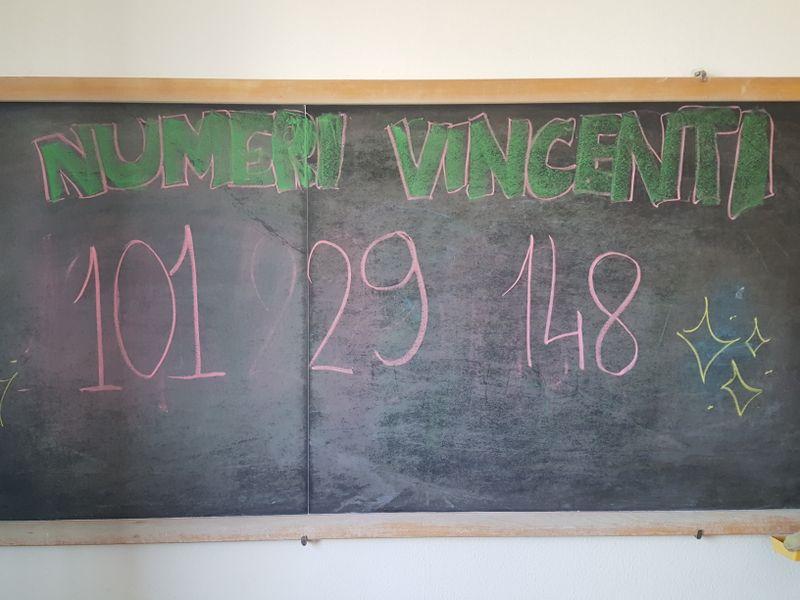 NUMERI VINCENTI
101 29 148